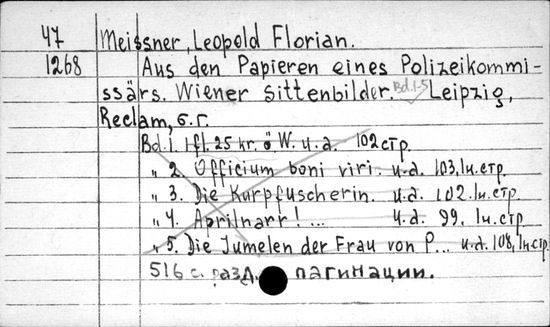 47 Meissner, Leopold Florian.
1268 Aus den Papieren eines Polizeikommi-
ssärs. Wiener Sittenbilder. Bd.1-5 Leipzig,
Reclam, б.г.
Bd. 1. 1 fl. 25 kr. ö W. u.a. 102 стр.
" 2. Officium boni viri. u.a. 103, 1н.стр.
" 3. Die Kurpfuscherin. u.a. 102. 1н.стр.
" 4. Aprilnarr! ... u.a. 99. 1н.стр
" 5. Die Jumelen der Frau von P... u.a. 108, 1н.стр.
516 с. разд. пагинации.